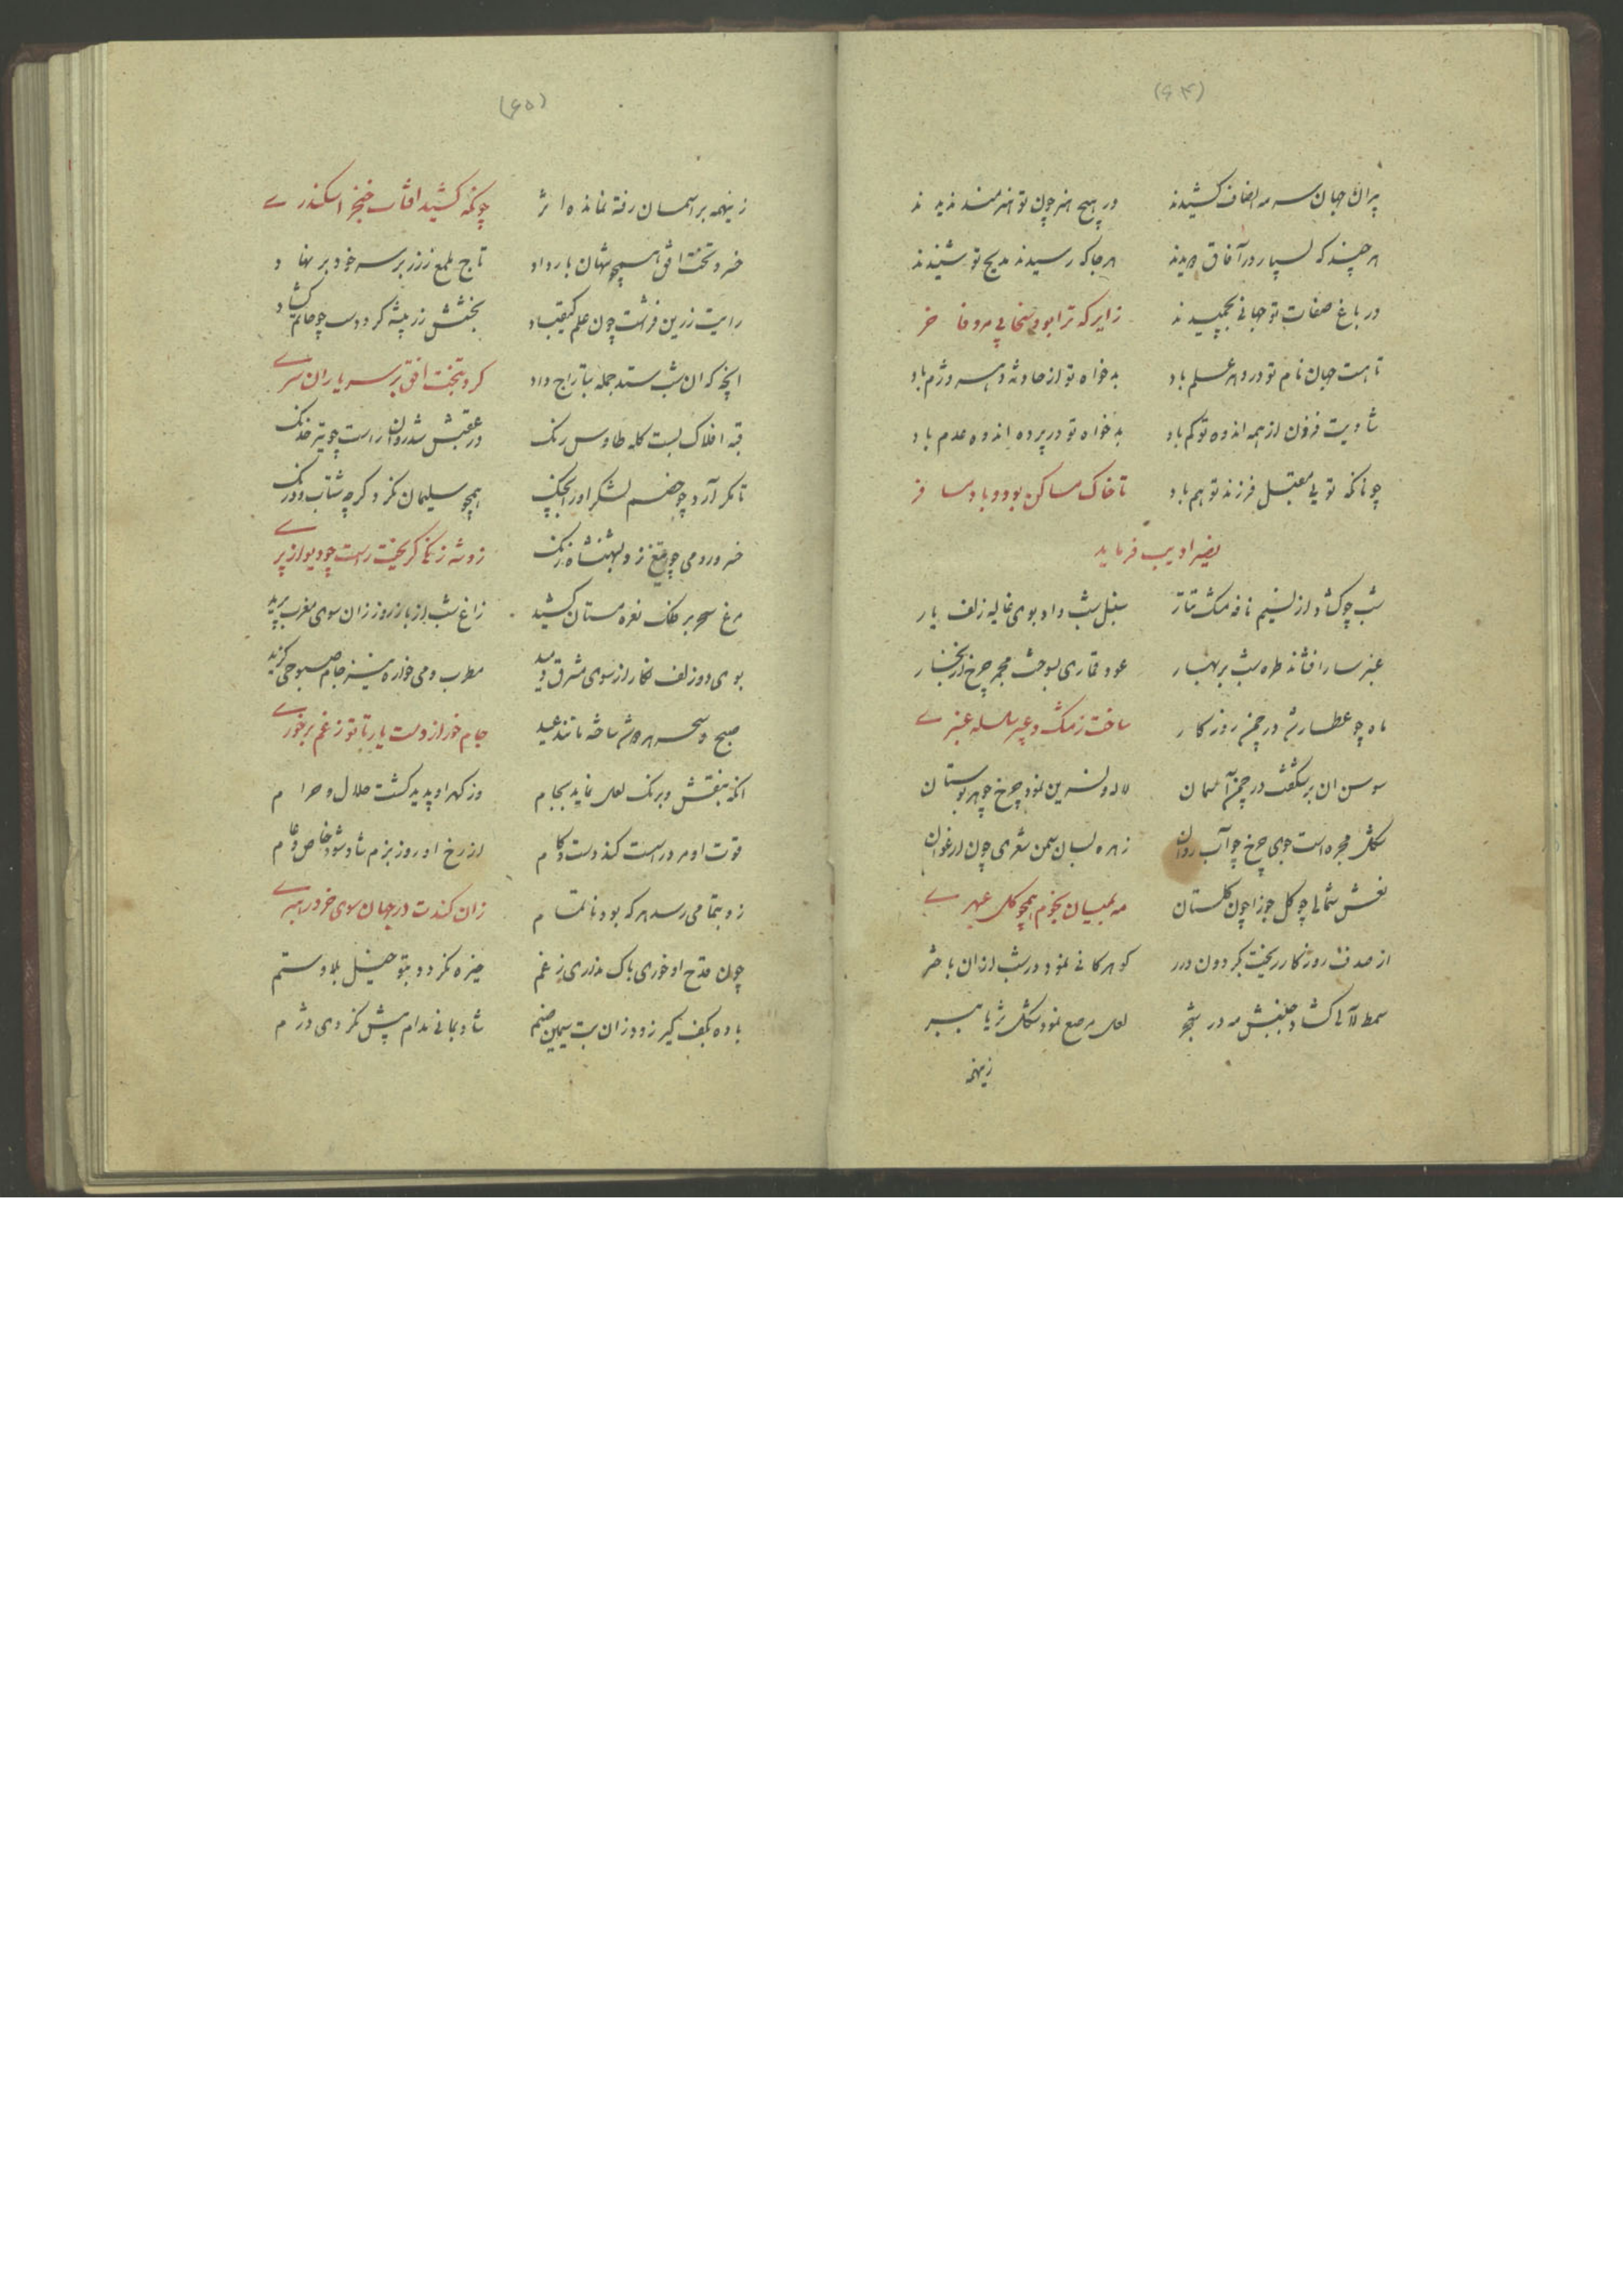 (۶۴)
پیران جهان سرمه انصاف کشیدند در هیچ هنر چون تو هنرمند ندیدند
هر چند که بسیار در آفاق دویدند هر جا که رسیدند مدیح تو شنیدند
در باغ صفات تو جهانی بچمیدند زیرا که ترا بود سخا بی مر و فاخر
تا هست جهان نام تو در دهر علم باد بدخواه تو از حادثه دهر دژم باد
شادیت فزون از همه اندوه تو کم باد بدخواه تو در پرده اندوه عدم باد
چونانکه تویی مقبل فرزند تو هم باد تا خاک مساکن بود و باد مسافر
نصیر ادیب فرماید
شب چو گشاد از نسیم نافه مشک تتار سنبل شب داد بوی غالیه زلف یار
عنبر سارا فشاند طره شب بر بهار عود قماری بسوخت مجمر چرخ از بخار
ماه چو عطار شد در چمن روزگار ساخت ز مشک و عبیر سلسله عنبری
سوسن ان برشکفت در چمن آسمان لاله و نسرین نمود چرخ چو بر بوستان
شکل مجره است جوی چرخ چو آب روان زهره بسان سمن شعری چون ارغوان
نعش شمالی چو گل جوزا چون گلستان مه بمیان نجوم همچو گل عبهری
از صدف روزگار ریخت بگردون درر گوهر کانی نمود در شب ازان باختر
سمط لآلی گشاد جنبش مه در شجر لعل مرصع نمود شکل ثریا ببر
زینهمه
(۶۵)
زینهمه بر آسمان رفته نمانده اثر چونکه کشید افتاب خنجر اسکندری
خسرو تخت افق همچو شهان بار داد تاج ملمع ز زر بر سر خود بر نهاد
رایت زرین فراشت چون علم کیقباد بخشش زر پیشه کرد دست چو حاتم گشاد
انچه که ان شب ستد جمله بتاراج داد کرد بتخت افق بر سر یاران سری
قبه افلاک بست کله طاوس رنگ در عقبش شد روان راست چو تیر خدنگ
تا مگر آرد چو خصم لشکر او را بچنگ همچو سلیمان نکرد گرچه شتاب و درنگ
خسرو رومی چو تیغ زد بشهنشاه زنگ زو شه زنگی گریخت راست چو دیو از پری
مرغ سحر بر فلک نعره مستان کشید زاغ شب از باز روز زان سوی مغرب پرید
بوی دو زلف نگار از سوی مشرق دمید مطرب و می خواره نیز جام صبوحی گزید
صبح و سحر هر دو شد ساخته مانند عید جام خور از دست یار تا تو ز غم برخوری
انکه بنقش و برنگ لعل نماید بجام وز گهر او پدید گشت حلال و حرام
قوت او مرد راست کند دست و کام از رخ او روز بزم شاد شود خاص و عام
زو بتمامی رسد هر که بود ناتمام زان کندت در جهان سوی خرد رهبری
چون قدح او خوری باک نداری ز غم خیره نگردد بتو خیل بلا و ستم
باده بکف گیر زود زان بت سیمین صنم شاد بمانی مدام بیش نگردی دژم